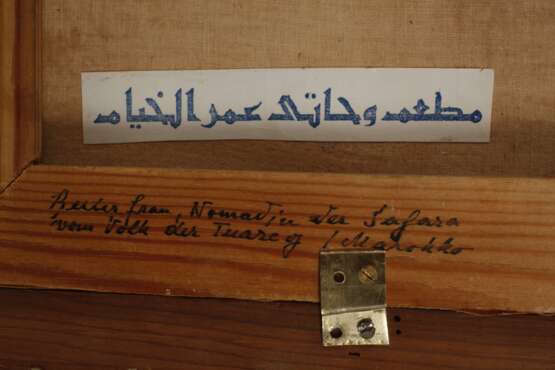 مطعم وحاتى عمر الخيام
Berber frau, Nomadin der Sahara
vom Volk der Tuareg / Marokko